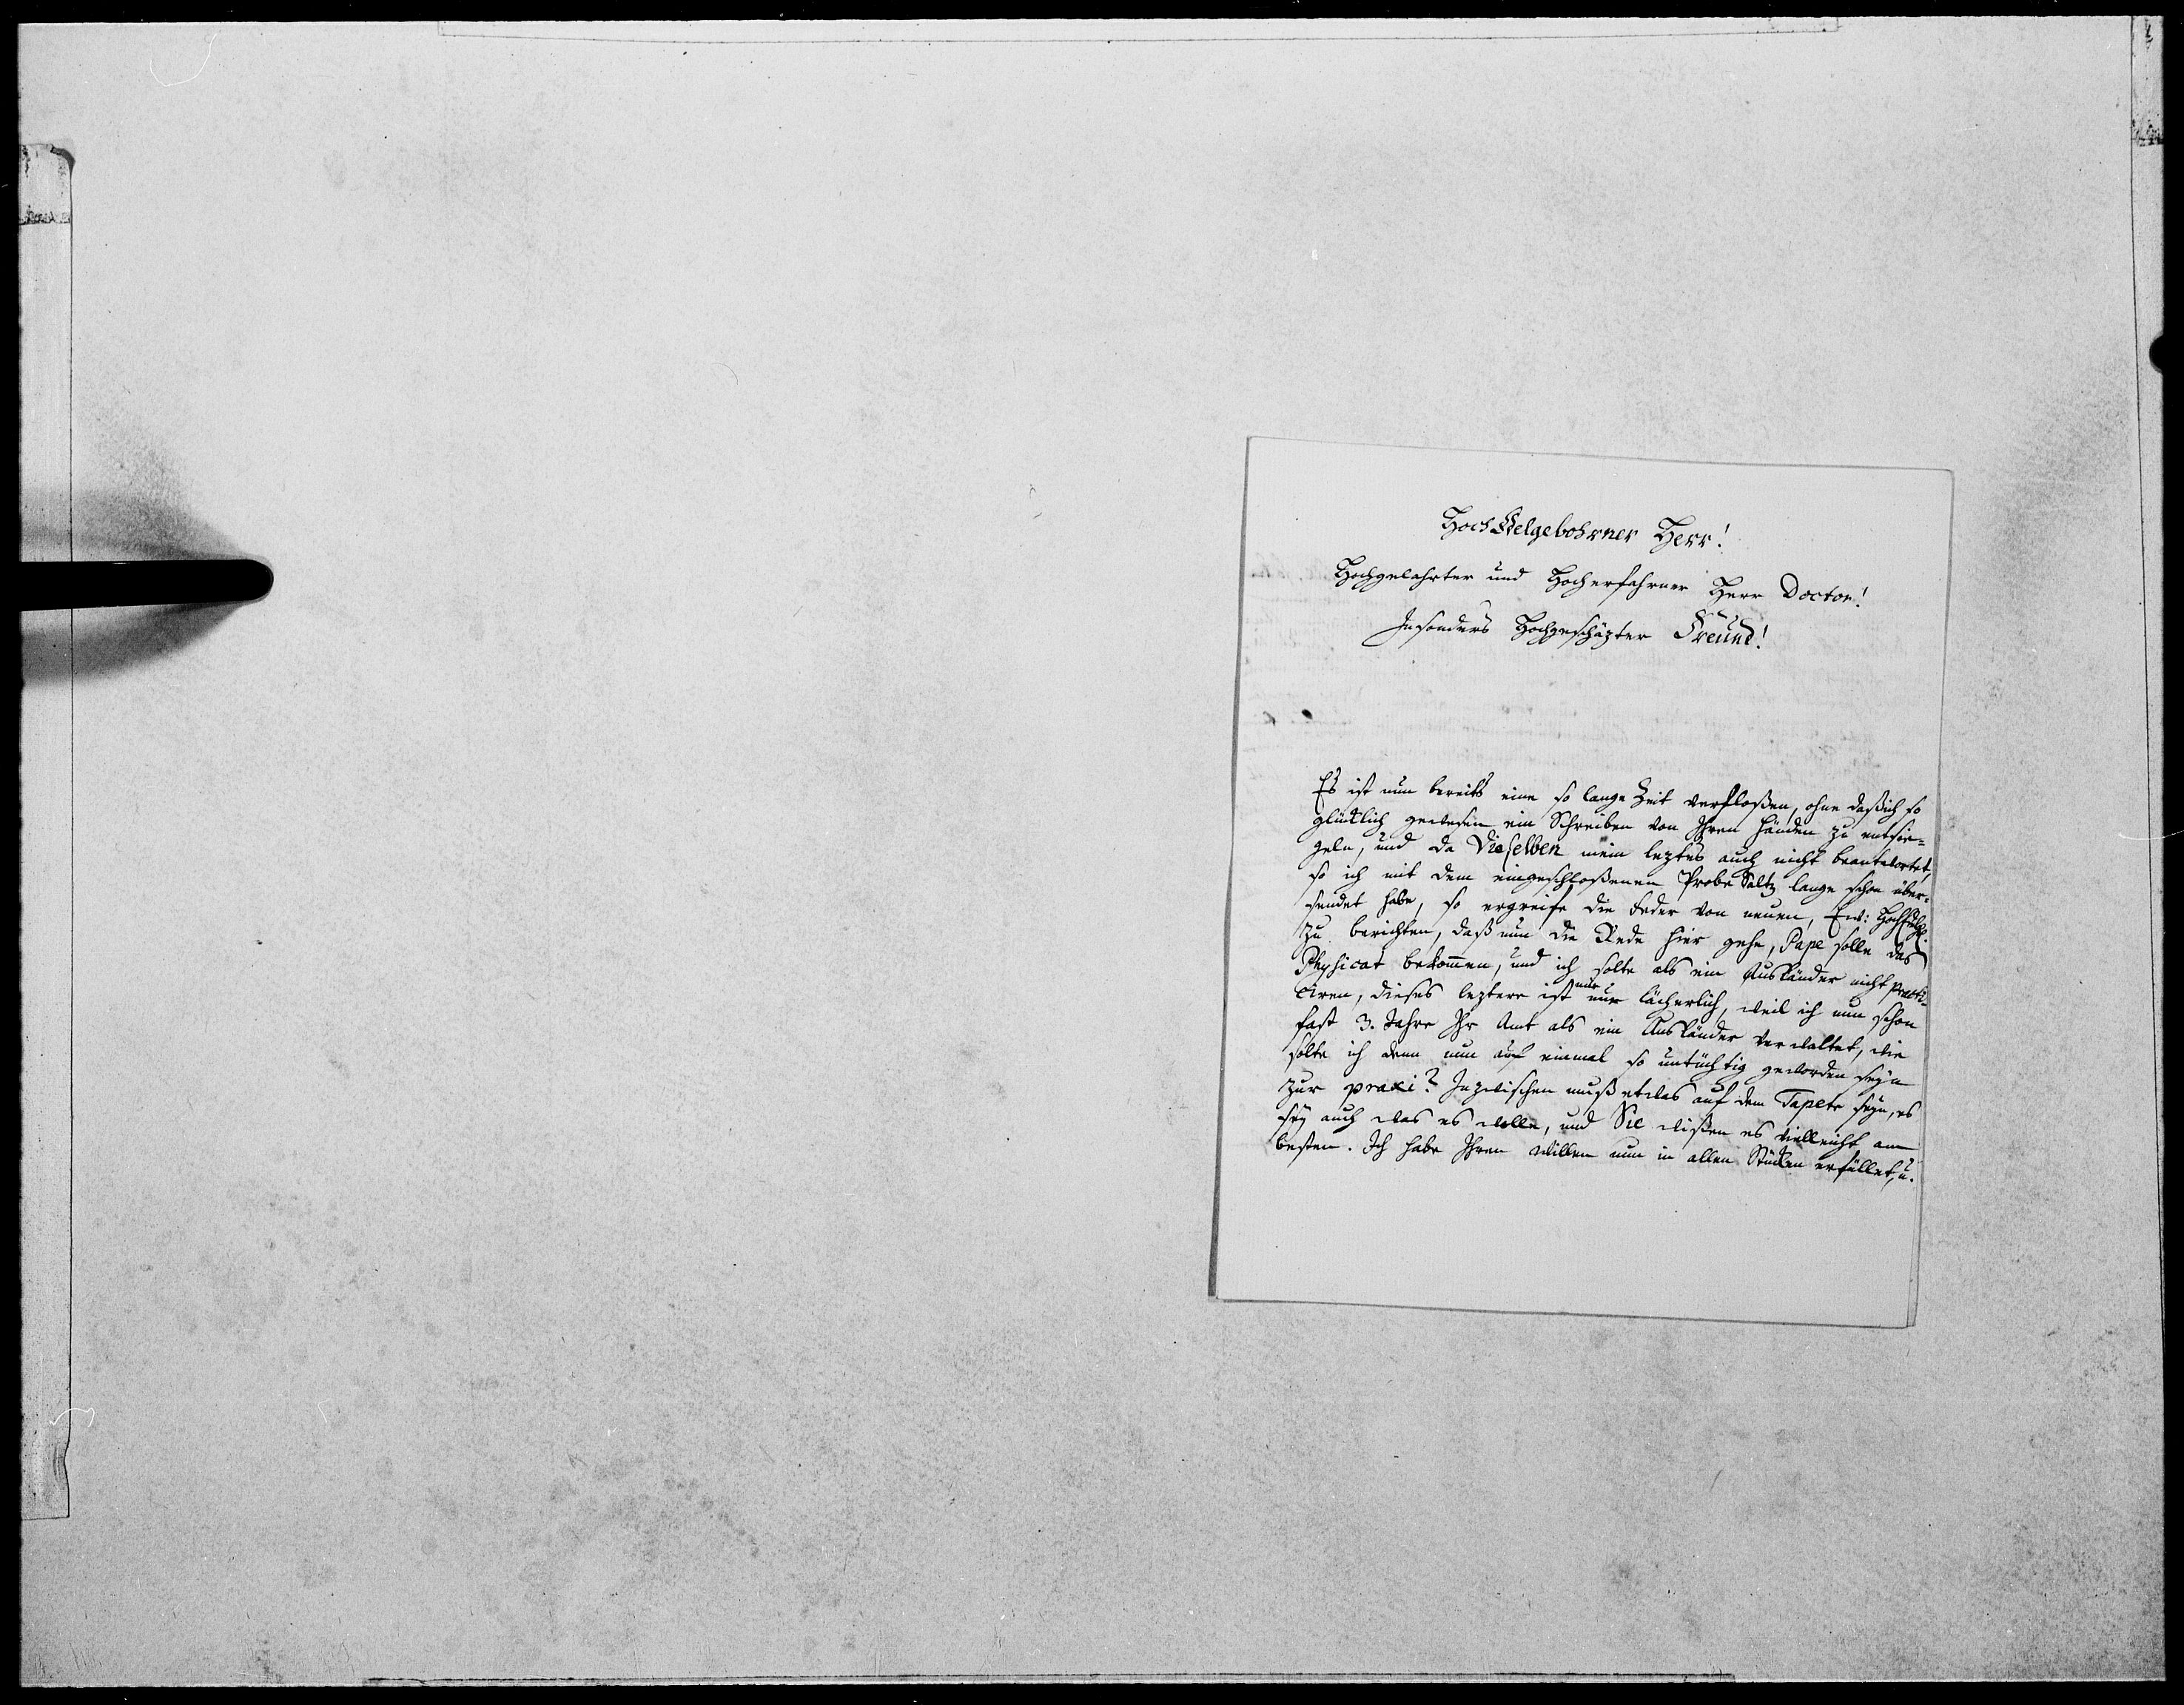 HochEdelgebohrner Herr!
Hochgelahrter und Hocherfahrner Herr Doctor!
Insonders Hochgeschäzter Freund!
Es ist nun bereits eine so lange Zeit verfloßen, ohne daß ich so
glücklich gewesen ein Schreiben von Ihren Händen zu entsie=
geln, und da Dieselben mein leztes auch nicht beantwortet,
so ich mit dem eingeschloßenen Probe Saltz lange schon über=
sendet habe, so ergreife die Feder von neuen, Ew:
zu berichten, daß nun die Rede hier gehe, Pape solle das
Physicat bekommen, und ich solte als ein Ausländer nicht practi=
ciren, dieses leztere ist nur lächerlich, weil ich nun schon
fast 3. Jahre Ihr Amt als ein Ausländer verwaltet, wie
solte ich denn nun auf einmal so untüchtig geworden seyn
zur praxi? Inzwischen muß etwas auf dem Tapete seyn, es
sey auch was es wolle, und Sie wißen es vielleicht am
besten. Ich habe Ihren Willen nun in allen Stücken erfüllet, u.